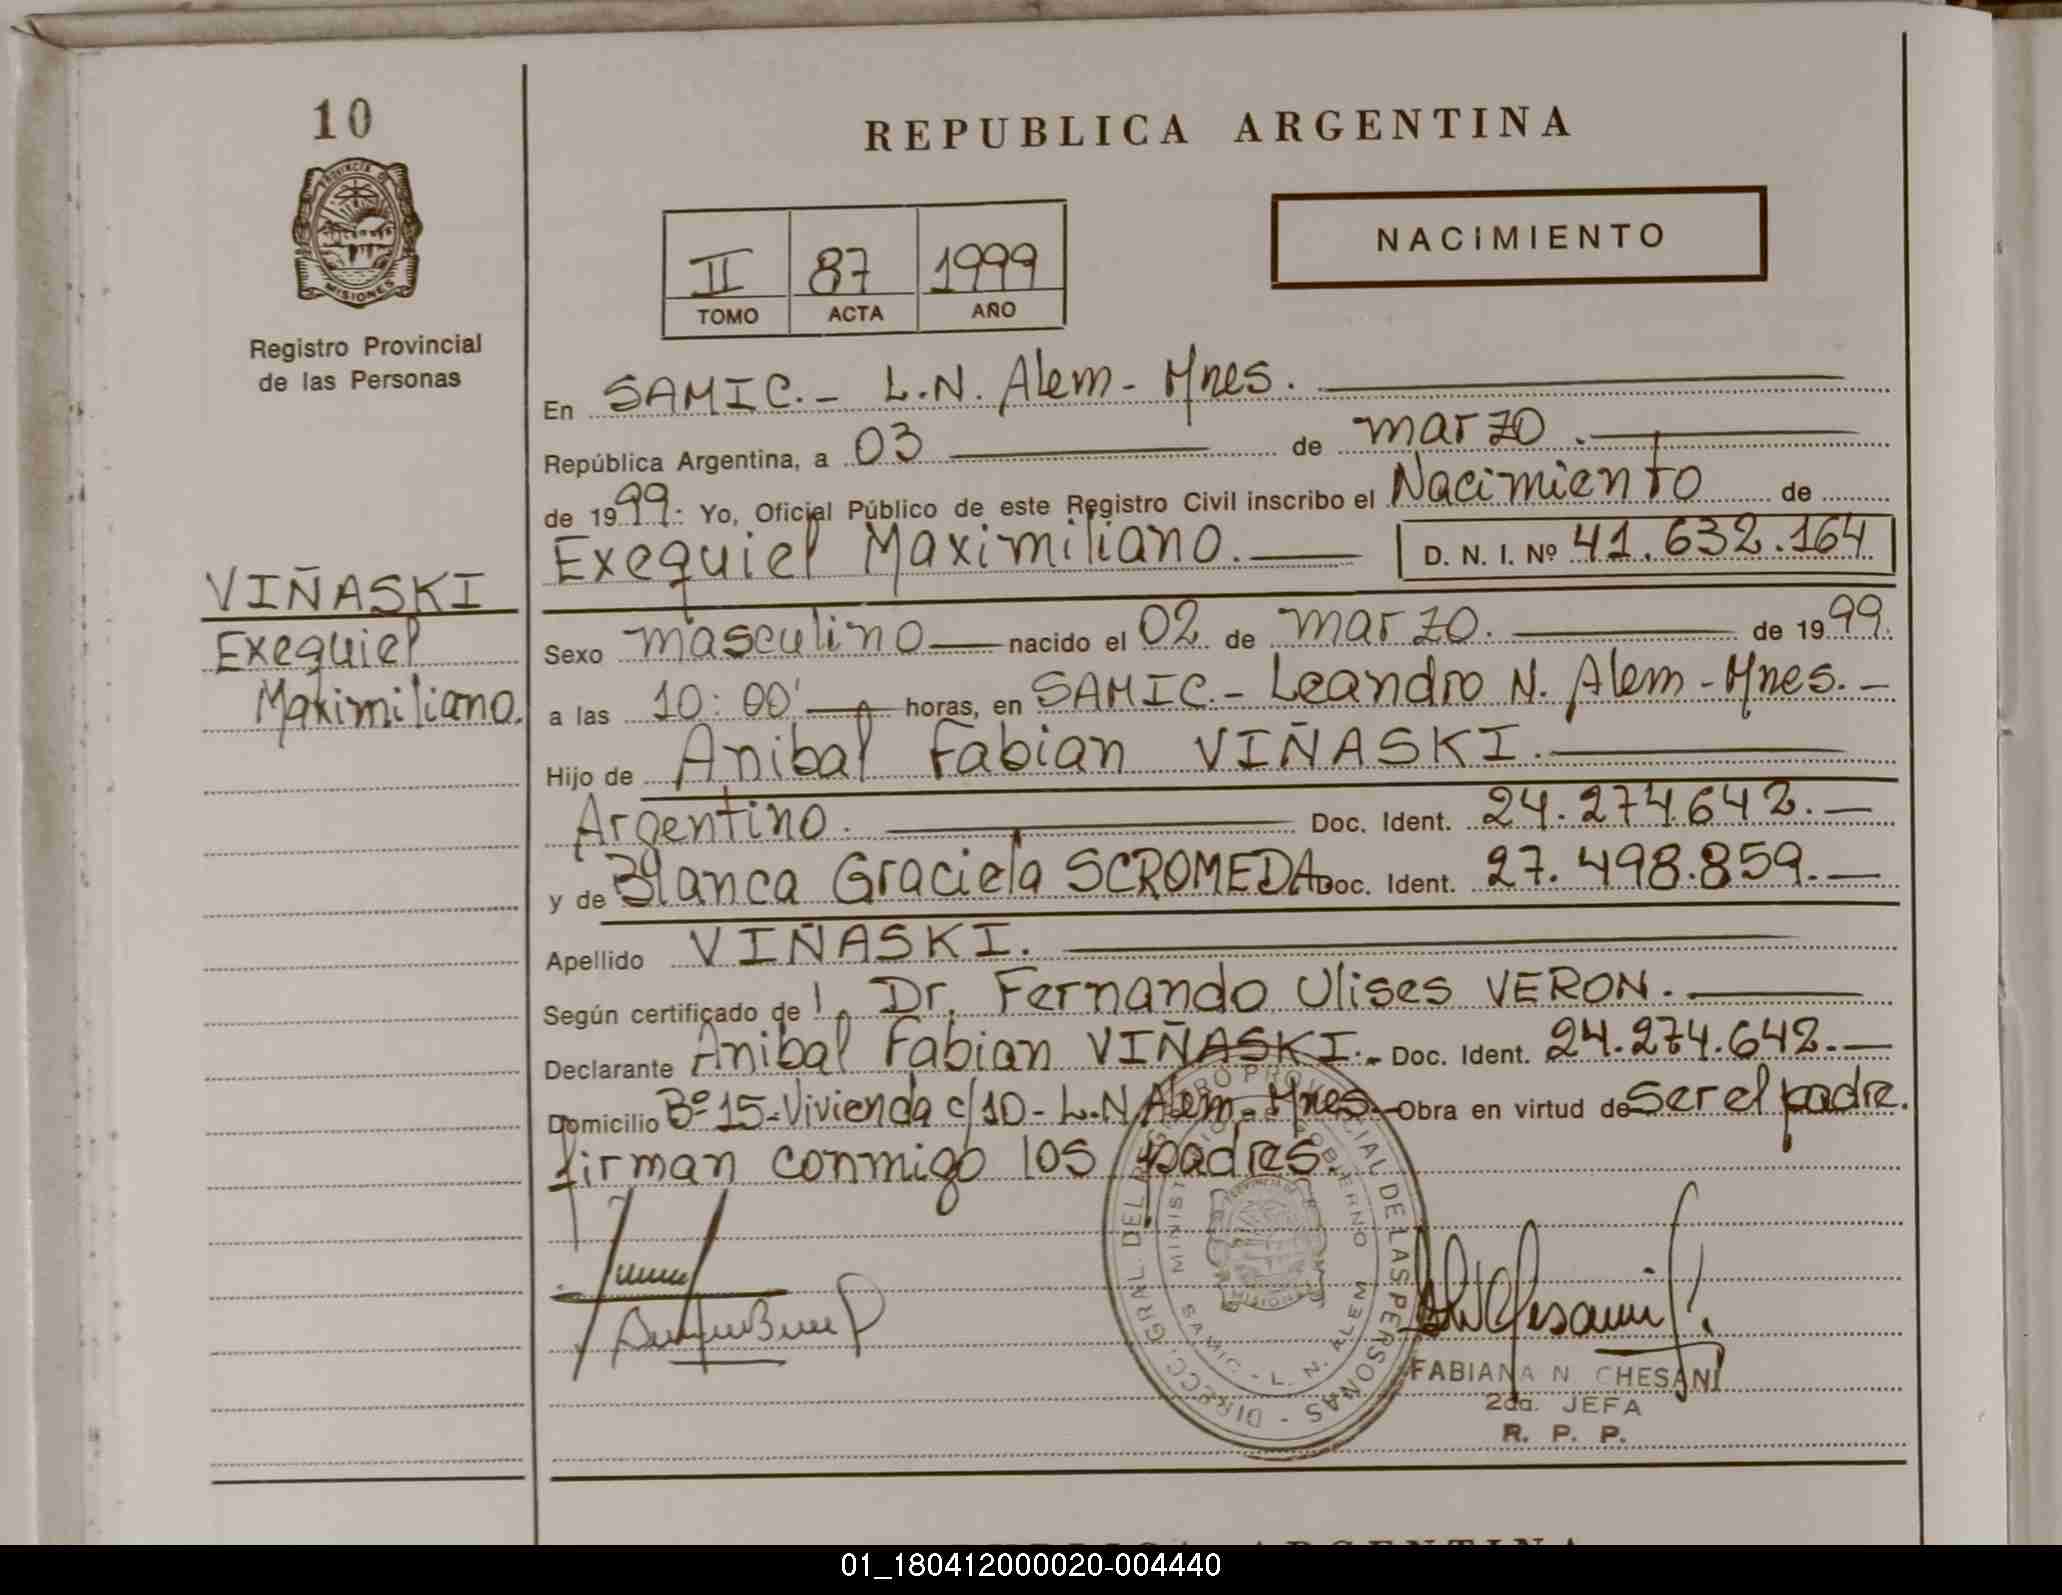 10
PROVINCIA DE
MISIONES
Registro Provincial
de las Personas
VIÑASKI
Exequiel
Maximiliano.
REPUBLICA ARGENTINA
II 87 1999
TOMO ACTA AÑO
NACIMIENTO
En SAMIC.- L.N. Alem - Mnes.
República Argentina, a 03 de marzo.
de 1999. Yo, Oficial Público de este Registro Civil inscribo el Nacimiento de
Exequiel Maximiliano. D. N. I. Nº 41.632.164
Sexo masculino nacido el 02 de marzo. de 1999.
a las 10:00' horas, en SAMIC.- Leandro N. Alem - Mnes. -
Hijo de Anibal Fabian VIÑASKI.
Argentino. Doc. Ident. 24.274.642.-
y de Blanca Graciela SCROMEDA Doc. Ident. 27.498.859.-
Apellido VIÑASKI.
Según certificado de l Dr. Fernando Ulises VERON.
Declarante Anibal Fabian VIÑASKI.- Doc. Ident. 24.274.642.-
Domicilio Bº 15-Vivienda c/10 - L.N. Alem - Mnes.- Obra en virtud de ser el padre.
firman conmigo los padres.
DIRECC. GRAL. DEL REGISTRO PROVINCIAL DE LAS PERSONAS -
MINISTERIO DE GOBIERNO
PROVINCIA DE
MISIONES
SAMIC. - L. N. ALEM
FABIANA N. CHESANI
2da. JEFA
R. P. P.
REPUBLICA ARGENTINA
01_180412000020-004440